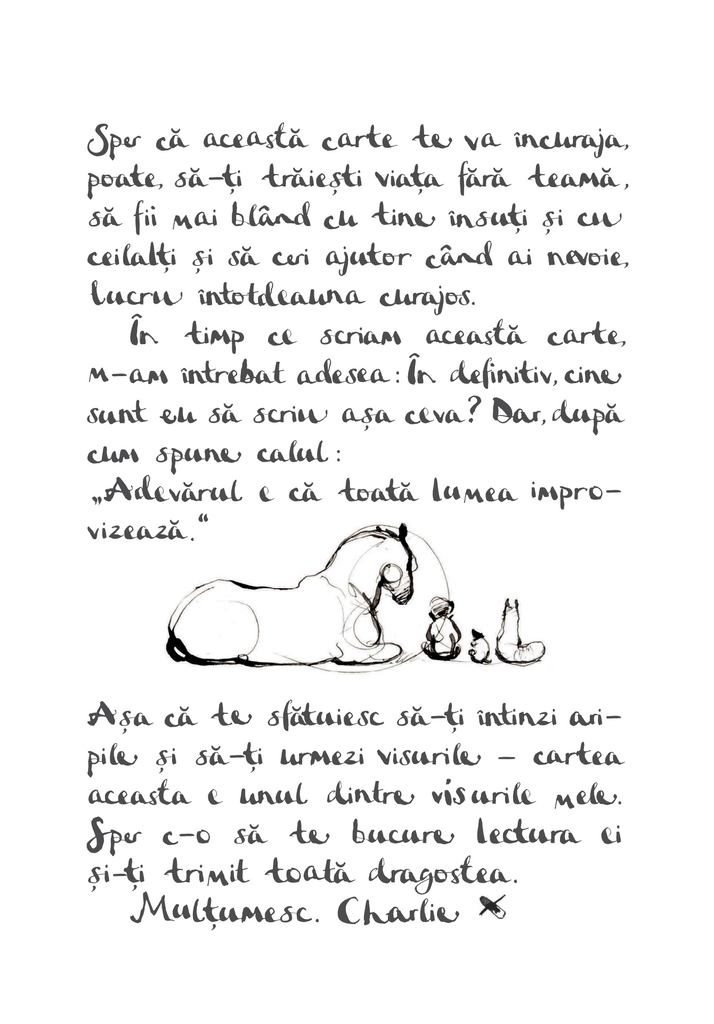 Sper că această carte te va încuraja,
poate, să-ți trăiești viața fără teamă,
să fii mai blând cu tine însuți și cu
ceilalți și să ceri ajutor când ai nevoie,
lucru întotdeauna curajos.
În timp ce scriam această carte,
m-am întrebat adesea: În definitiv, cine
sunt eu să scriu așa ceva? Dar, după
cum spune calul:
„Adevărul e că toată lumea impro-
vizează.“
Așa că te sfătuiesc să-ți întinzi ari-
pile și să-ți urmezi visurile – cartea
aceasta e unul dintre visurile mele.
Sper c-o să te bucure lectura ei
și-ți trimit toată dragostea.
Mulțumesc. Charlie